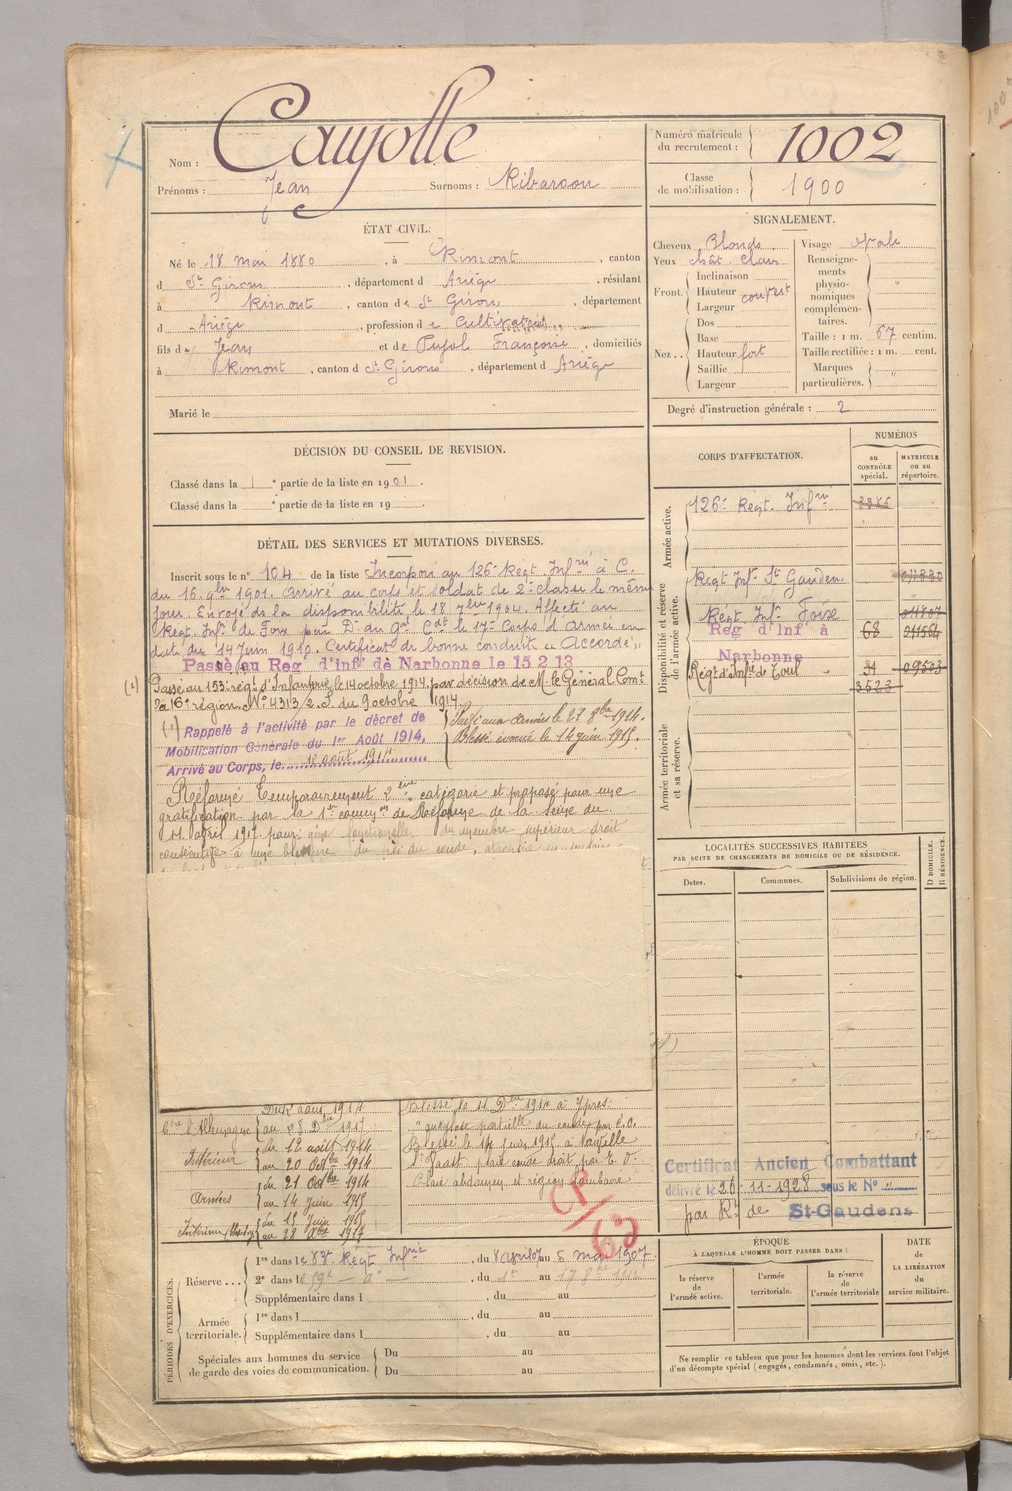 Nom : Caujolle
Prénoms : Jean Surnoms : Ribarson
Numéro matricule du recrutement : 1002
Classe de mobilisation : 1900
ÉTAT CIVIL.
Né le 18 mai 1880, à Rimont, canton
d St Girons, département d Ariège, résidant
à Rimont, canton de St Girons, département
d Ariège, profession de Cultivateur
fils de Jean et de Pujol Françoise, domiciliés
à Rimont, canton d St Girons, département d Ariège
Marié le
SIGNALEMENT.
Cheveux Blonds
Yeux chât. clairs
Front. Inclinaison
Hauteur couvert
Largeur
Nez.. Dos
Base
Hauteur fort
Saillie
Largeur
Visage ovale
Renseignements physionomiques complémentaires. "
Taille : 1 m. 67 centim.
Taille rectifiée : 1 m. cent.
Marques particulières. "
Degré d'instruction générale : 2
DÉCISION DU CONSEIL DE REVISION.
Classé dans la 1e partie de la liste en 1901.
Classé dans la e partie de la liste en 19 .
DÉTAIL DES SERVICES ET MUTATIONS DIVERSES.
Inscrit sous le n° 104 de la liste Incorporé au 126e Regt Infrie à C.
du 16 9bre 1901. Arrivé au corps et soldat de 2e classe le même
jour. Envoyé ds la disponibilité le 18 7bre 1904. Affecté au
Régt. Infie de Foix par Don du Gal Cdt le 17e Corps d'Armée en
date du 14 Juin 1910. Certificat de bonne conduite "Accordé"
Passé au Reg d'Infie de Narbonne le 15 2 13
(1) Passé au 153e régt d'Infanterie le 14 octobre 1914 par décision de M. le Général Comt
la 16e région N° 4313/2. S. du 9 octobre 1914.
(1) Rappelé à l'activité par le décret de
Mobilisation Générale du 1er Août 1914,
Arrivé au Corps, le 12 août 1914
Passé aux armées le 27 8bre 1914.
Blessé évacué le 14 juin 1915.
Réformé Temporairement 2ème catégorie et proposé pour une
gratification par la 1re common de Réforme de la Seine du
11 avril 1917 pour: gêne fonctionnelle du membre supérieur droit
consécutive à une blessure du pli du coude,
CORPS D'AFFECTATION.
NUMÉROS
au CONTRÔLE spécial.
MATRICULE ou au répertoire.
Armée active.
126e Régt. Infrie 3365
Disponibilité et réserve de l'armée active.
Regt Infie St Gaudens 011830
Regt Infie Foix 011807
Reg d'Infie à Narbonne 68 011564
Régt d'Infie de Toul 31 09503
3523
Armée territoriale et sa réserve.
LOCALITÉS SUCCESSIVES HABITÉES
PAR SUITE DE CHANGEMENTS DE DOMICILE OU DE RÉSIDENCE.
Dates.
Communes.
Subdivisions de région.
D DOMICILE.
R RÉSIDENCE.
C/re l'Allemagne
au 28 Dbre 1917
Intérieur du 12 août 1914
au 20 Octbre 1914
Armées du 21 Octbre 1914
au 14 Juin 1915
Intérieur (blessé) du 15 Juin 1915
au 28 Xbre 1917
Blessé le 11 Dbre 1914 à Ypres.
" ankylose partielle du coude par é.o.
Blessé le 14 juin 1915 à Neuville
St Vaast. plaie coude droit par E. O.
Plaie abdomen et région lombaire
Certificat Ancien Combattant
délivré le 26-11-1928 sous le N° "
par Rt de St-Gaudens
PÉRIODES D'EXERCICES.
Réserve...
1re dans le 83e Régt Infrie, du 8 avril 07 au 5 mai 1907.
2e dans le 59e — do —, du 1er au 17 8bre
Supplémentaire dans l , du au
Armée territoriale.
1re dans l , du au
Supplémentaire dans l , du au
Spéciales aux hommes du service de garde des voies de communication.
Du au
Du au
ÉPOQUE
À LAQUELLE L'HOMME DOIT PASSER DANS :
la réserve de l'armée active.
l'armée territoriale.
la réserve de l'armée territoriale
DATE de LA LIBÉRATION du service militaire.
Ne remplir ce tableau que pour les hommes dont les services font l'objet
d'un décompte spécial (engagés, condamnés, omis, etc.).